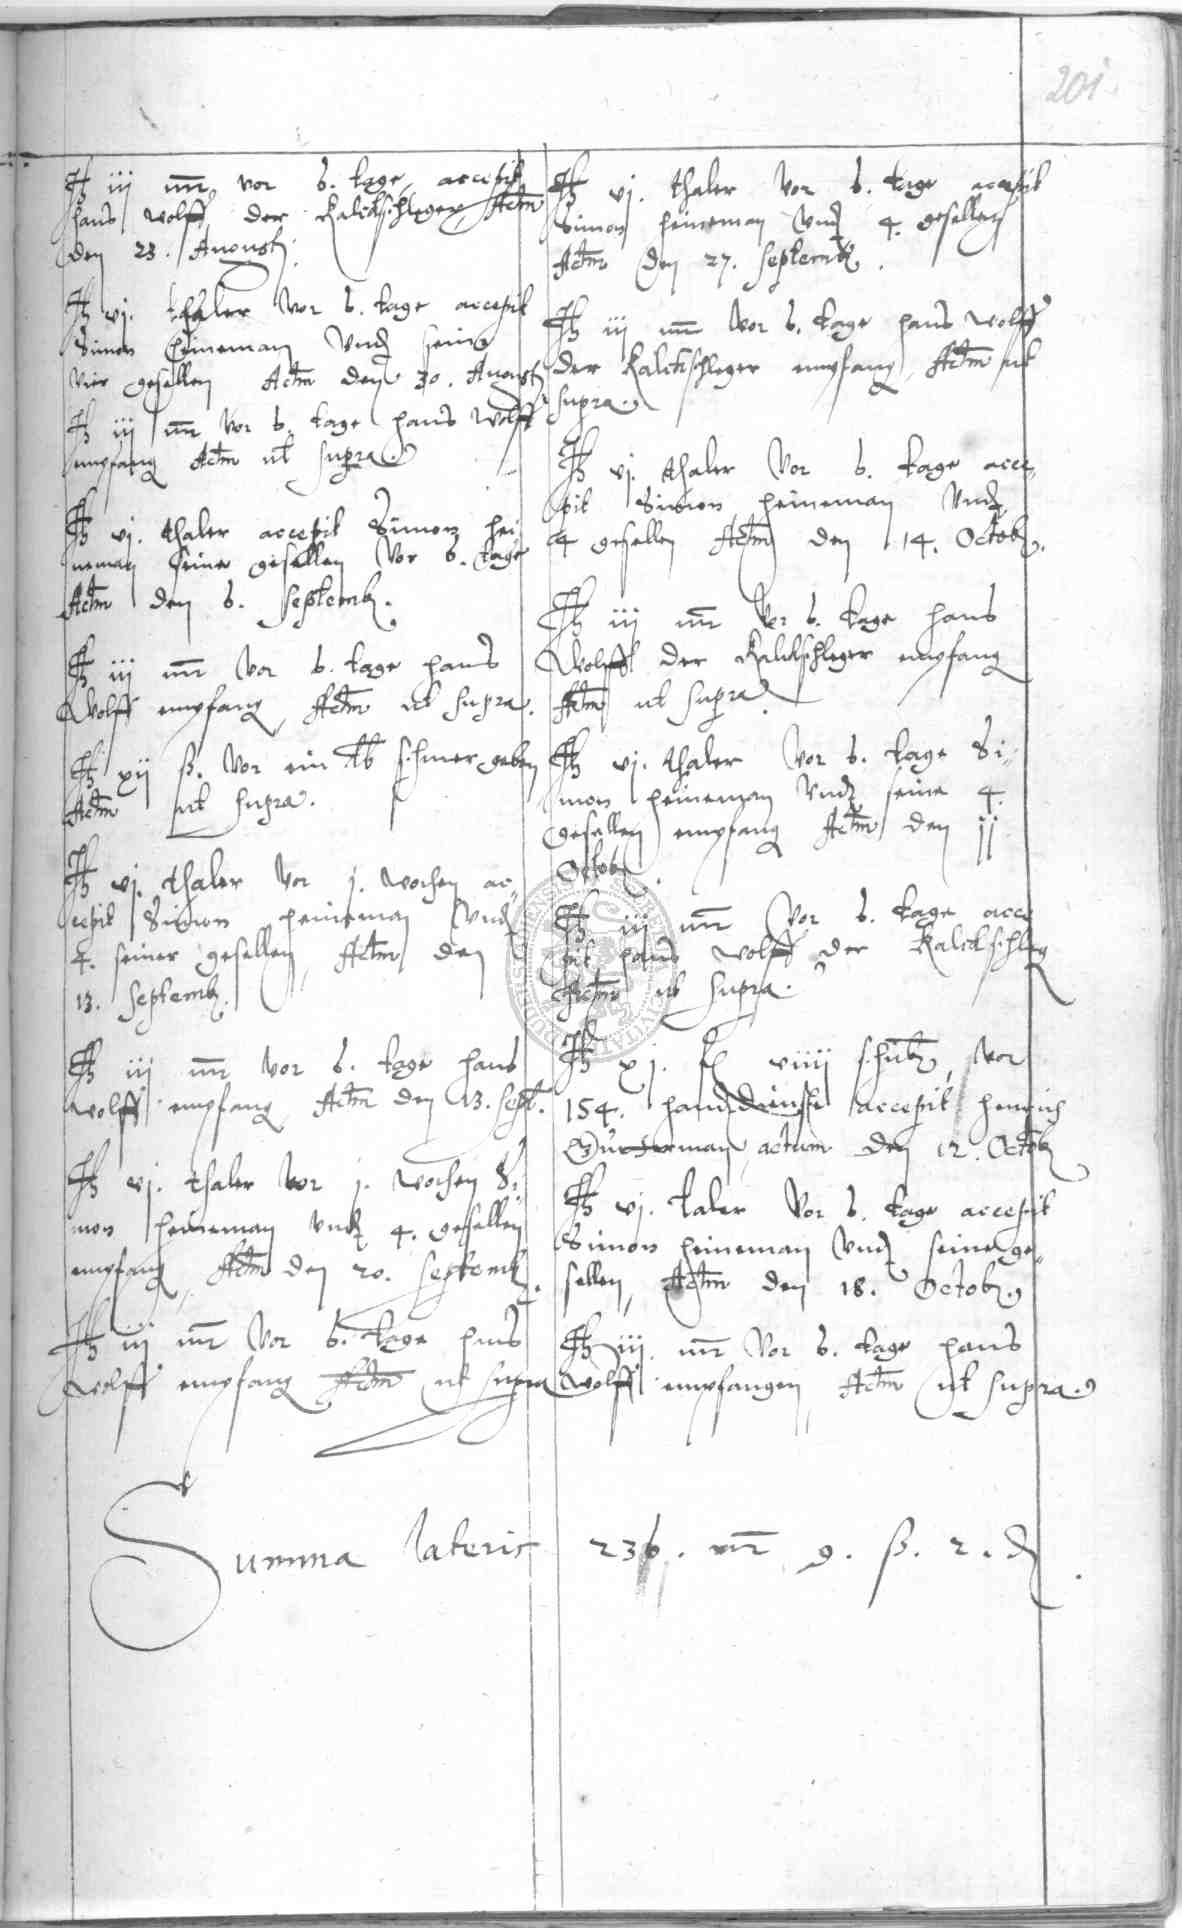 201
It iii mr vor 6. tage, accepit
Hans Wolff der Kalckschleger Actm
den 23. Augusti.
It vj. thaler vor 6. tage accepit
Simon Heineman Und seine
vier gesellen Actm den 30. Augusti
It iij mr vor 6. tage Hans Wolff
empfang Actm ut supra.
It vj. thaler accepit Simon Hei
neman seine gesellen Vor 6. tage
Actm den 6. Septemb.
It iii mr vor 6. tage Hans
Wolff empfang, Actm ut supra.
It xij ß. Vor ein lb schmer geben
Actm ut supra.
It vj. thaler vor j. wochen ac-
cepit Simon Heineman Und
4. seiner gesellen, Actm den
13. Septemb.
It iii mr vor 6. tage Hans
Wolff empfang Actm den 13. Sept.
It vj. thaler vor j. wochen Si-
mon Heineman Und 4. gesellen
empfang, Actm den 20. Septemb.
It iij mr Vor 6. tage Hans
Wolff empfang Actm ut supra
It vj. thaler Vor 6. tage accepit
Simon Heineman Und 4. gesellen
Actm den 27. Septemb.
It iij mr Vor 6. tage Hans Wolff
der Kalckschleger empfang, Actm ut
supra.
It vj. thaler Vor 6. tage acce-
pit Simon Heineman Und
4 gesellen Actm den 14. Octob.
It iij mr Vor 6. tage Hans
Wolff der Kalckschleger empfang
Actm ut supra.
It vj. thaler Vor 6. tage Si-
mon Heineman Und seine 4.
gesellen empfang Actm den jj
Octob.
It iij mr Vor 6. tage acce
pit Hans Wolff der Kalckschleg
Actm ut supra.
It xj. viiij Vor
154. handdienste accepit Henrich
actum den 12. Octob
It vj. taler Vor 6. tage accepit
Simon Heineman Und seine ge-
sellen, Actm den 18. Octob.
It iij. mr Vor 6. tage Hans
Wolff empfangen, Actm ut supra.
Summa lateris 236. mr 9. ß. 2. d